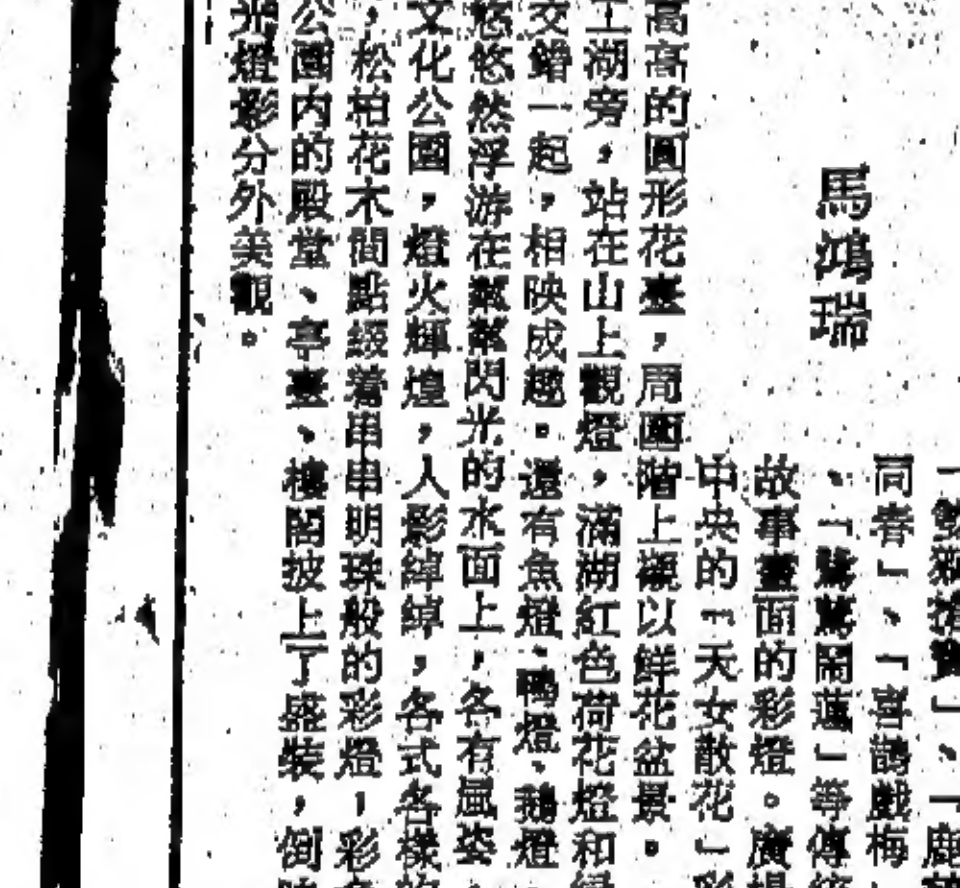 馬鴻瑞
同春」、「喜鵲戲梅」
、「鴛鴦鬧蓮」等傳
故事畫面的彩燈。廣場
中央的「天女散花」彩
高高的圓形花臺，周圍階上襯以鮮花盆景。
工湖旁，站在山上觀燈，滿湖紅色荷花燈和綠
交錯一起，相映成趣。還有魚燈、鴨燈、鵝燈
悠悠然浮游在粼粼閃光的水面上，各有風姿。
文化公園，燈火輝煌，人影綽綽，各式各樣的
，松柏花木間點綴着串串明珠般的彩燈，彩
公園內的殿堂、亭臺、樓閣披上了盛裝，倒映
光燈影分外美觀。